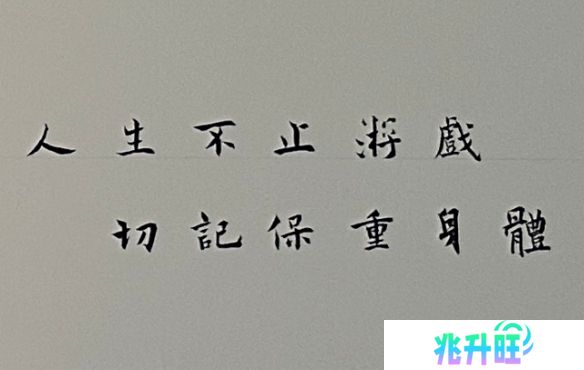 人生不止游戲
切記保重身體
兆升旺